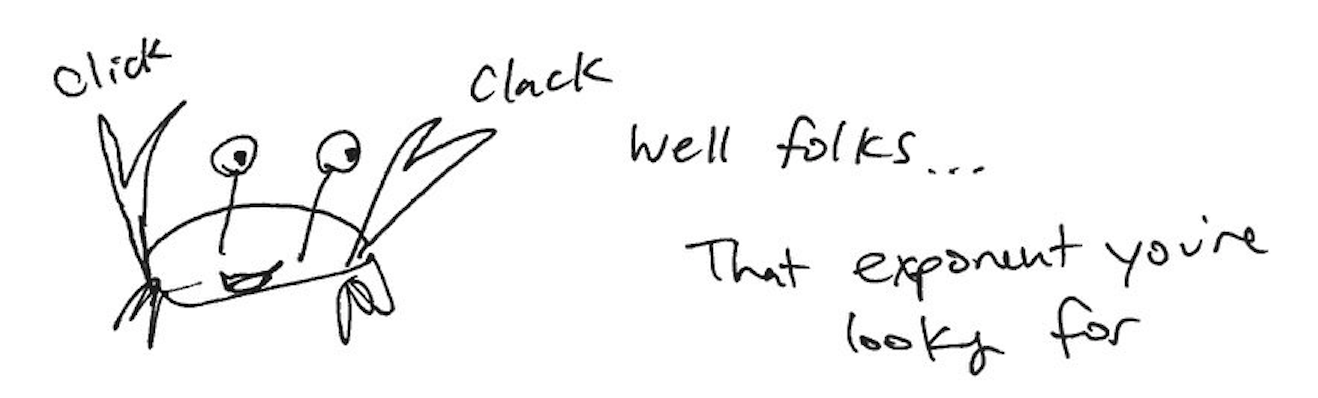 Click
Clack
Well folks...
That exponent you're
looky for